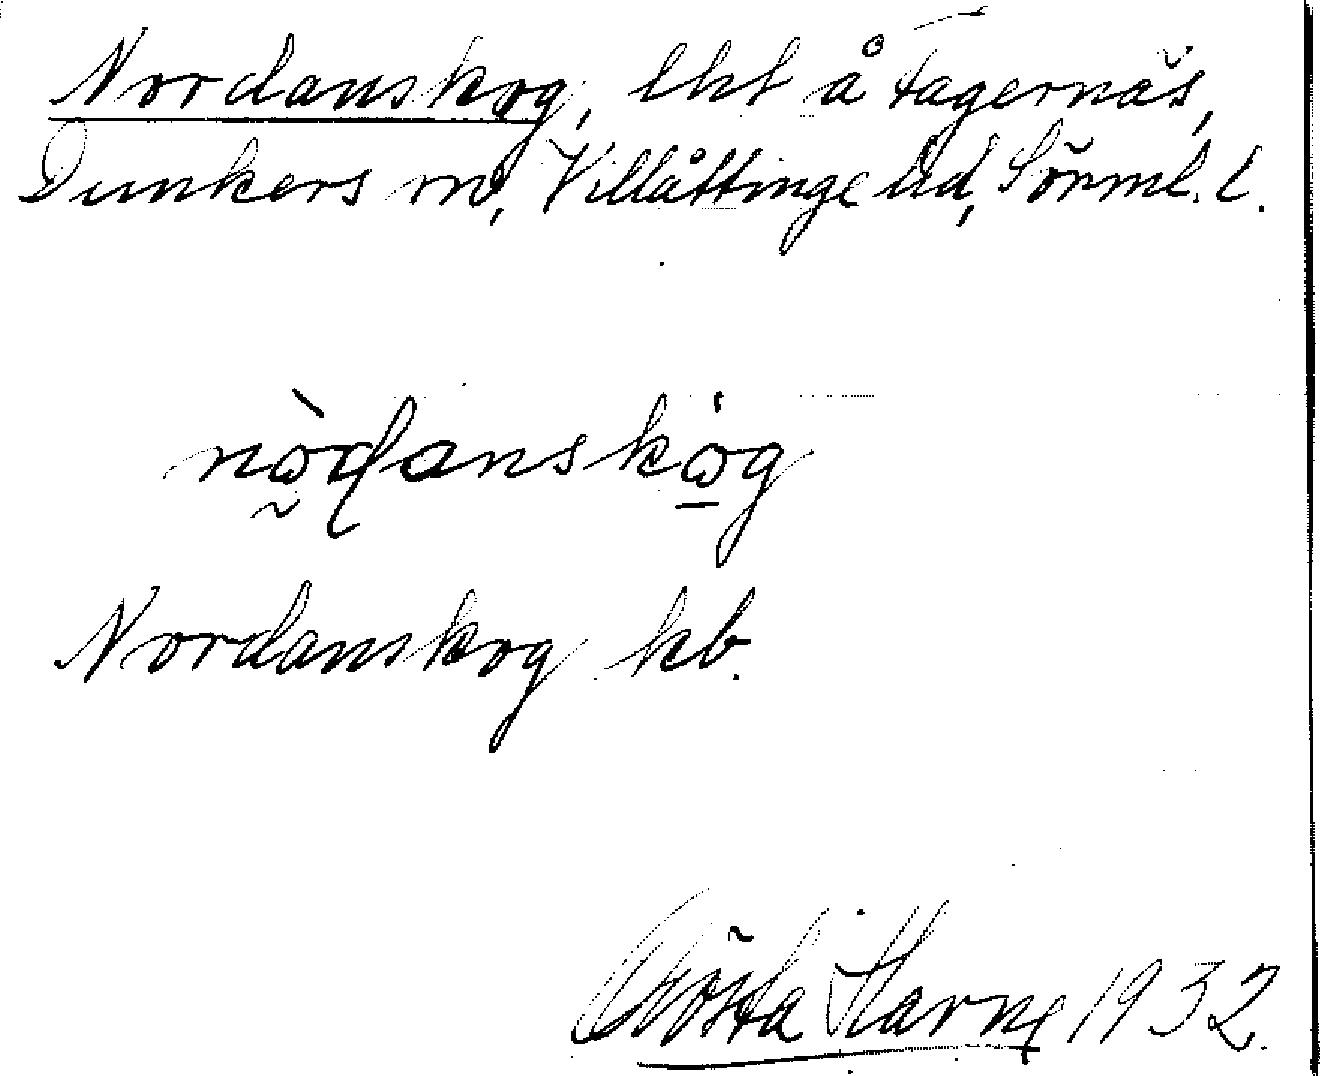 Nordanskog, lht å Fagernäs,
Dunkers sn, Villåttinge hd, Sörml. l.
nò̰ɖanskȯ̱g
Nordanskog kb.
Gösta Harne 1932.